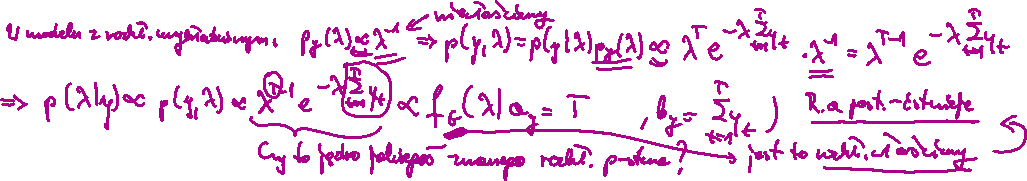 niewłaściwy
W modelu z rozkł. wykładniczym, p_J(λ) ∝ λ^{-1} ⇒ p(y,λ) = p(y|λ) p_J(λ) ∝ λ^T e^{-λ Σ_{t=1}^T y_t} · λ^{-1} = λ^{T-1} e^{-λ Σ_{t=1}^T y_t}
⇒ p(λ|y) ∝ p(y,λ) ∝ λ^{T-1} e^{-λ Σ_{t=1}^T y_t} ∝ f_G(λ | a_y = T, b_y = Σ_{t=1}^T y_t) R. a post. istnieje
Czy to jądro jakiegoś znanego rozkł. p-stwa? → jest to rozkł. właściwy